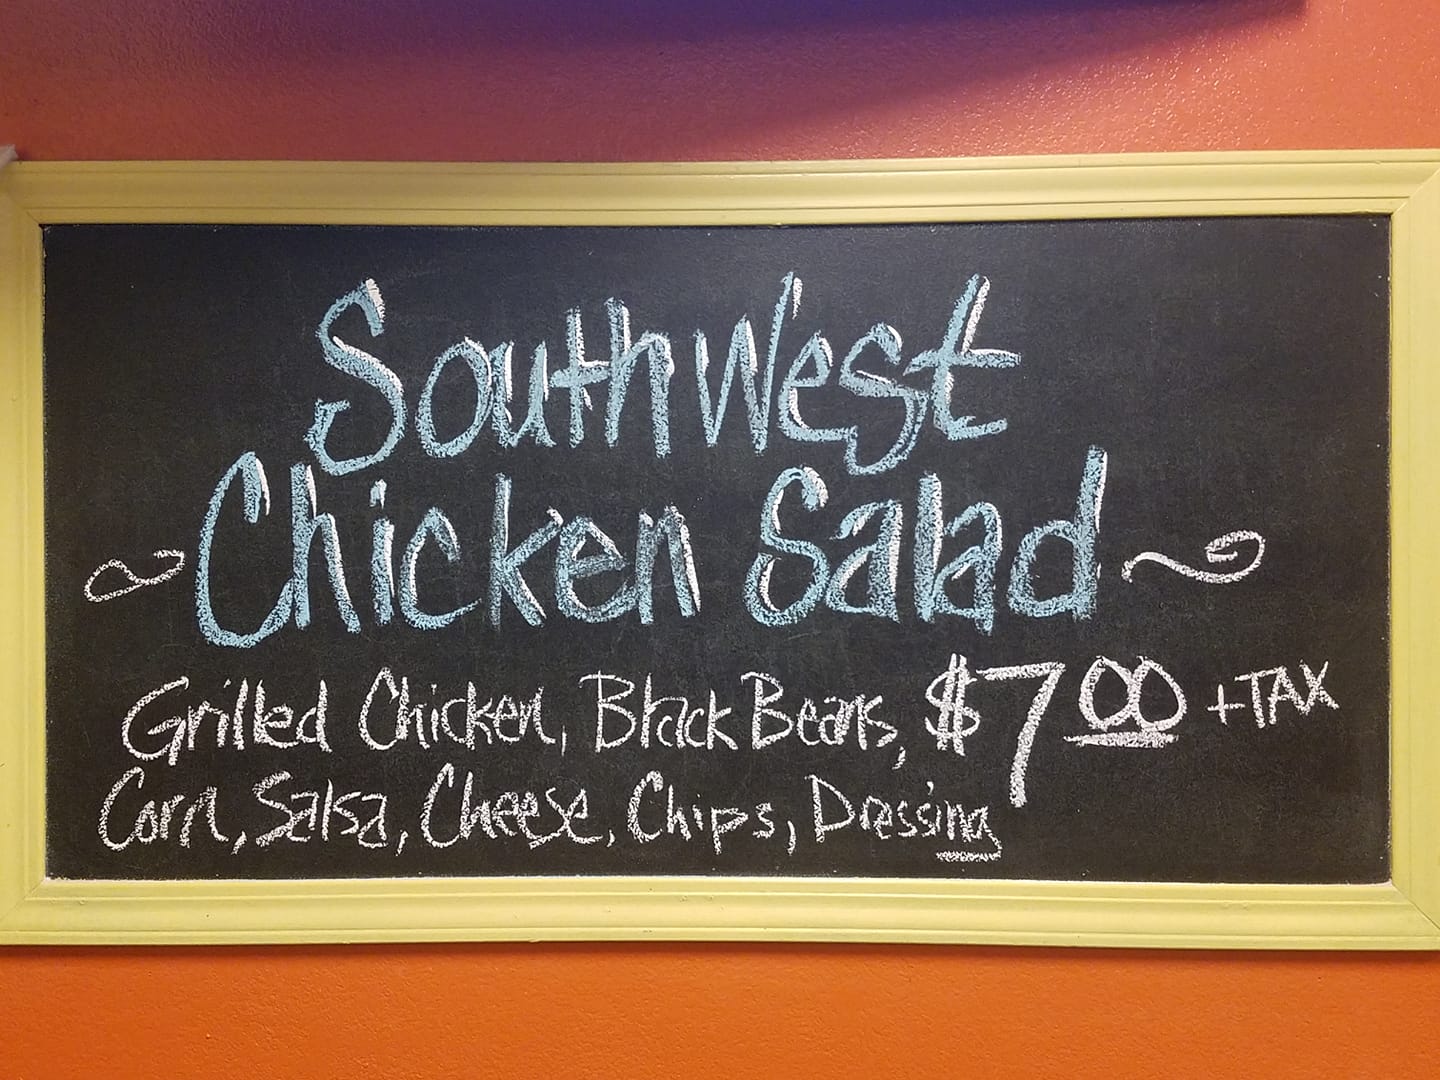 SouthWest
Chicken Salad
Grilled Chicken, Black Beans,
Corn, Salsa, Cheese, Chips, Dressing
$7.00 +TAX